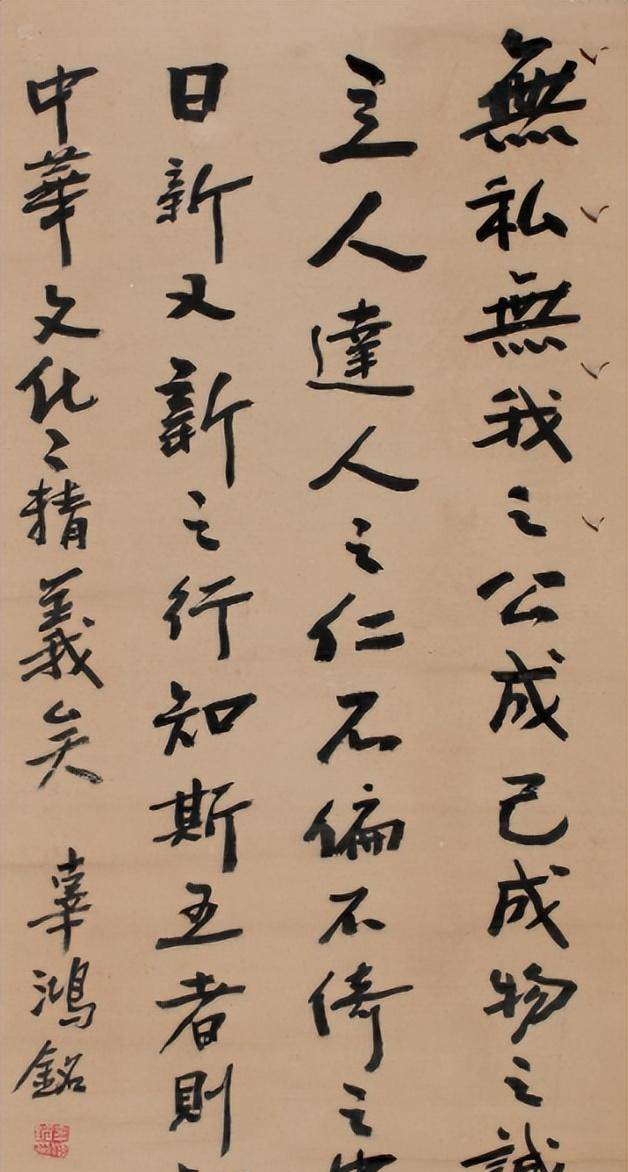 無私無我之公成己成物之誠
立人達人之仁不偏不倚之中
日新又新之行知斯五者則
中華文化之精義矣 辜鴻銘